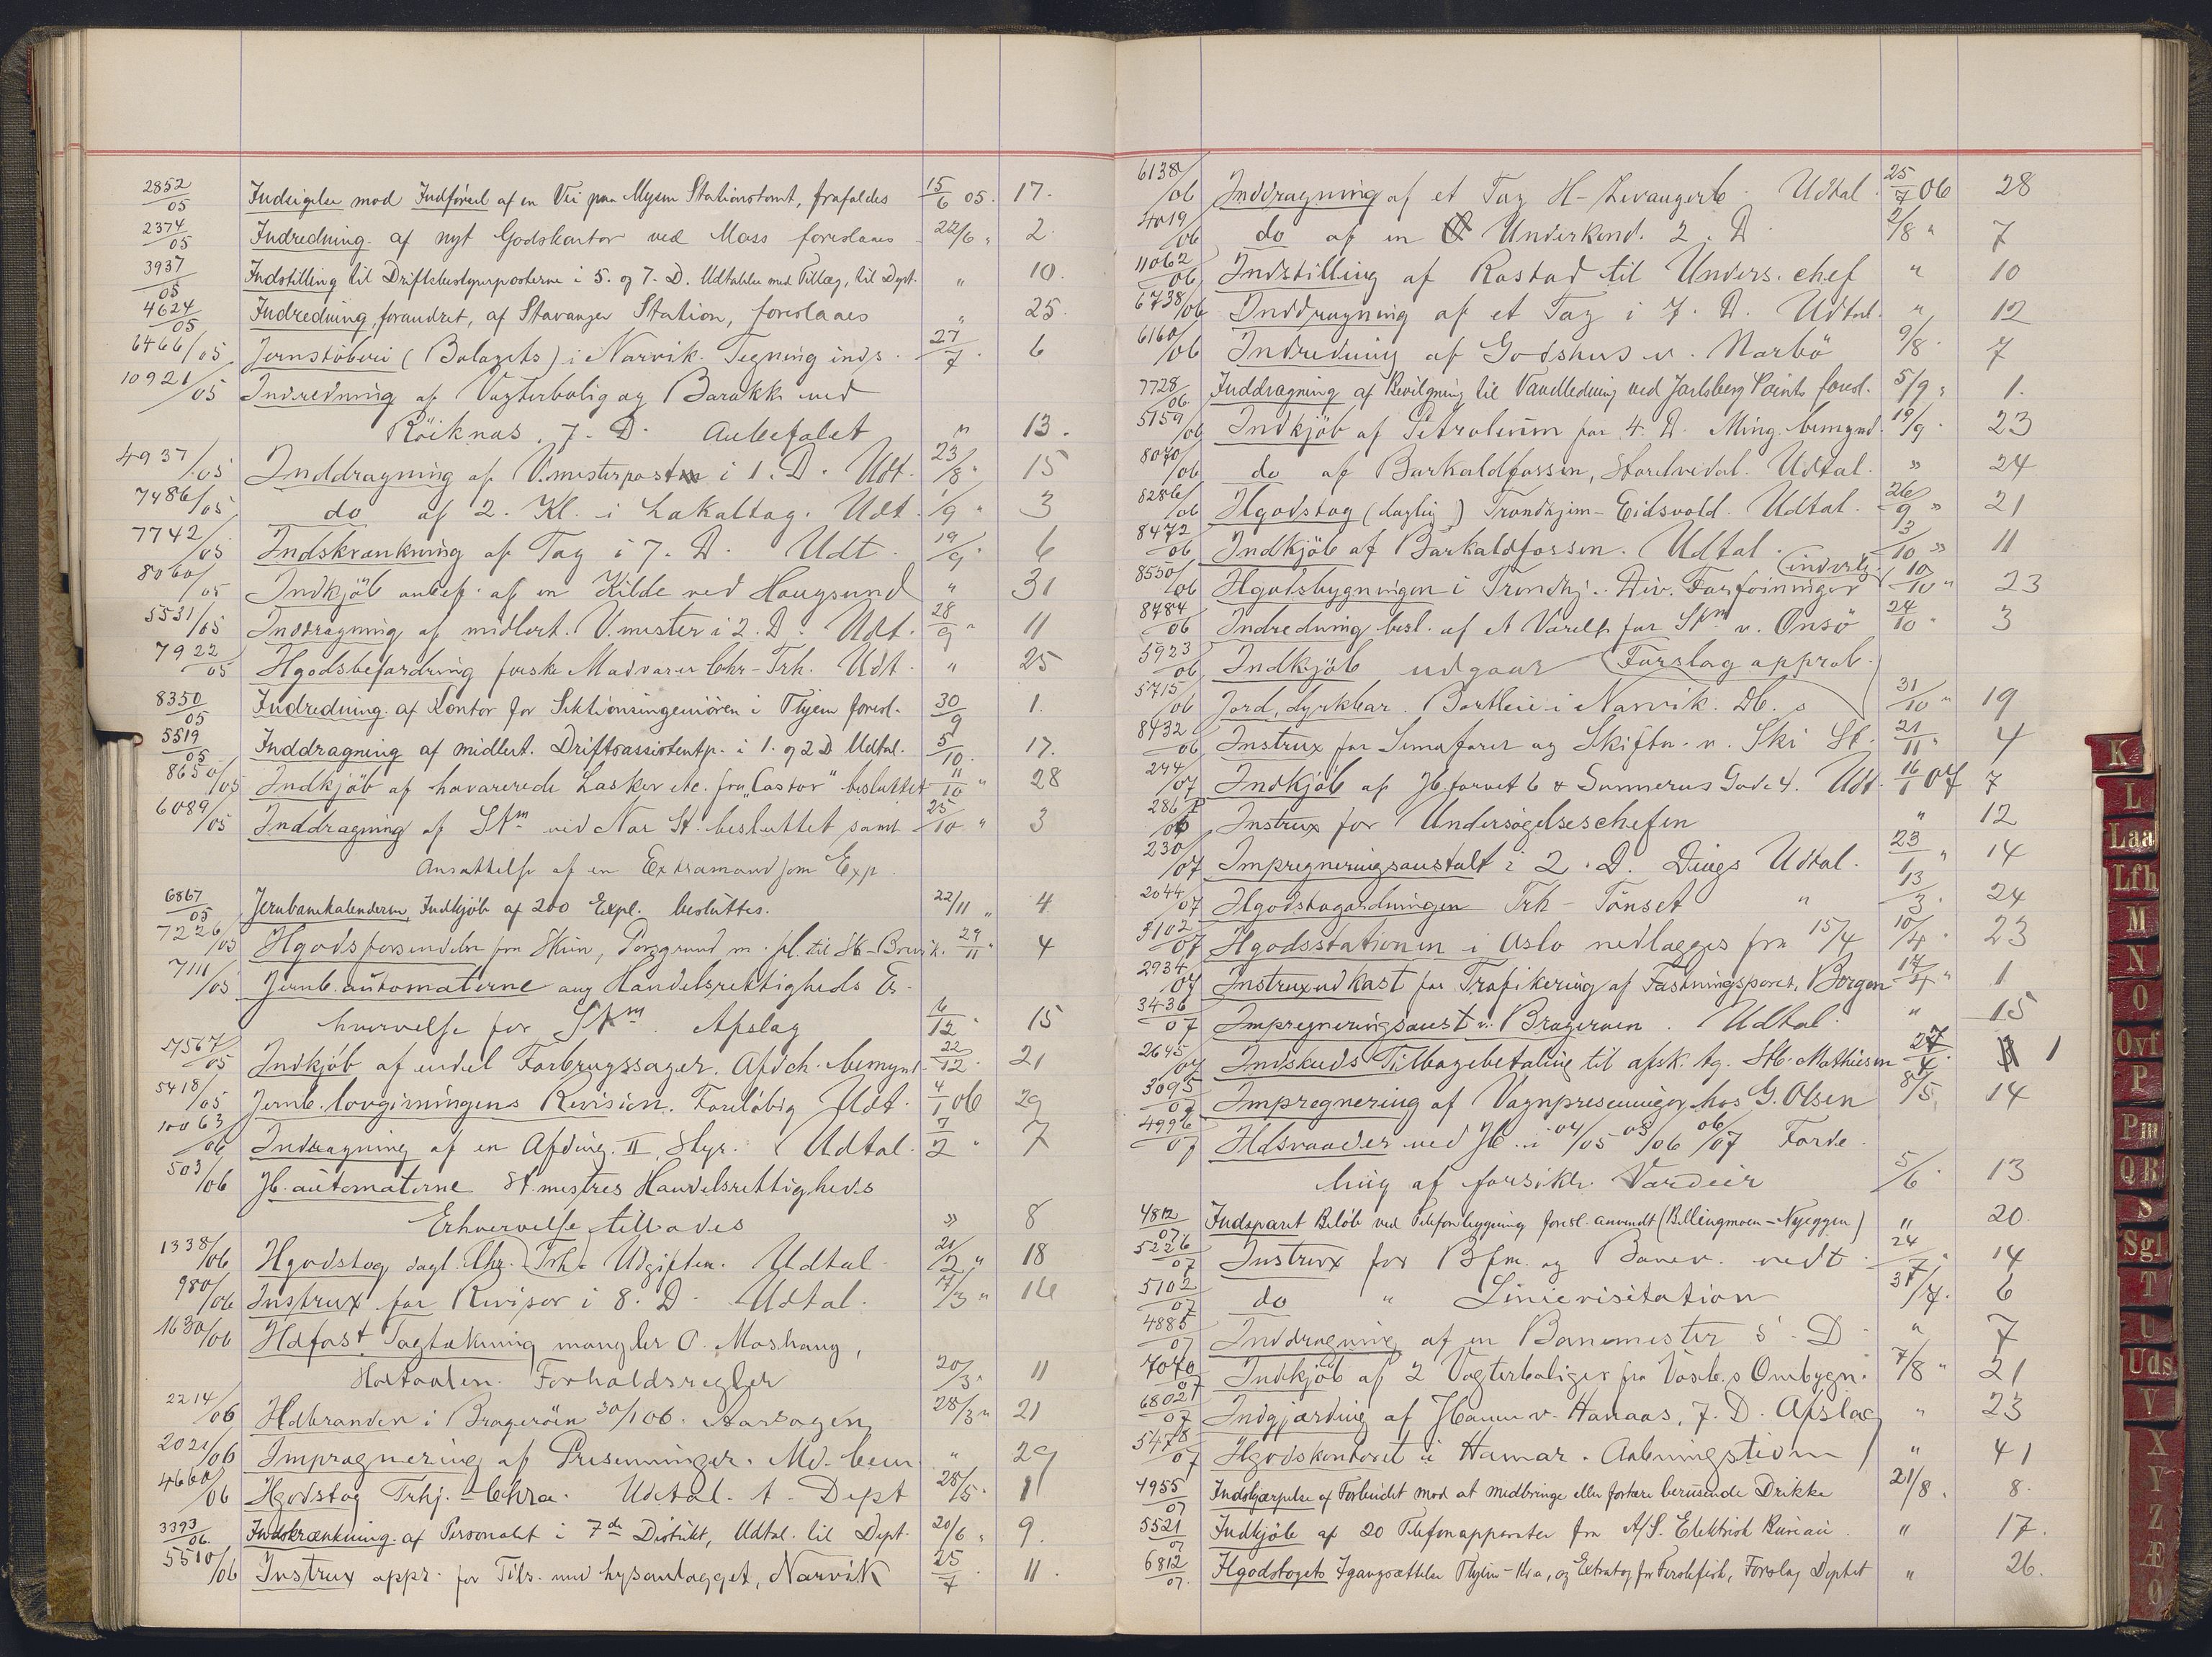 2852/05 Indsigelse mod Indførsel af en Vei paa Mysen Stationstomt, frafaldes 15/6 05. 17.
2374/05 Indredning af nyt Godskontor ved Moss foreslaaes 22/6 " 2.
3937/05 Indstilling til Driftsbestyrerposterne i 5. og 7. D. Udtalelse med Tillæg, til Dept. " 10.
4624/05 Indredning, forandret, af Stavanger Station, foreslaaes " 25.
6466/05 Jernstöberi (Bolagets) i Narvik. Tegning inds. 27/7. 6
10921/05 Indredning af Vogterbolig og Barakke ved
Röiknes, 7. D. Anbefalet " 13.
4937/05 Inddragning af V.mesterpost i 1. D. Udt. 23/8 " 15
7486/05 do af 2. Kl. i Lokaltog. Udt. 1/9 " 3
7742/05 Indskrænkning af Tog i 7. D. Udt. 19/9 " 6
8060/05 Indkjöb anbef. af en Kilde ved Hougsund " 31
5531/05 Inddragning af midlert. V.mester i 2. D. Udt. 28/9 " 11
7922/05 Ilgodsbefordring ferske Madvarer Chr-Trh. Udt. " 25
8350/05 Indredning af Kontor for Sektionsingeniören i Thjem foresl. 30/9 1.
5519/05 Inddragning af midlert. Driftsassistentp. i 1. og 2 D Udtal. 5/10. 17.
8650/05 Indkjöb af havarerede Lasker etc. fra "Castor" besluttet 11/10 " 28
6089/05 Inddragning af Stm ved Nor St. besluttet samt 25/10 " 3
Ansættelse af en Extramand som Exp.
6867/05 Jernbanekalenderen, Indkjöb af 200 Expl. besluttes. 22/11 " 4
7226/05 Ilgodsforsendelse fra Skien, Porsgrund m. fl. til Sk-Brevik. 29/11 " 4
7111/05 Jernb.automaterne ang Handelsrettigheds Er-
hvervelse for Stm. Afslag 6/12 " 15
27567/05 Indkjöb af endel Forbrugssager. Afdch. bemynd. 22/12. 21
5418/05 Jernb.lovgivningens Revision. Foreløbig Udt. 4/1 06 29
10063/06 Inddragning af en Afding. II, Styr. Udtal. 7/2 " 7
503/06 Jb.automaterne St.mestres Handelsrettigheds
Erhvervelse tillades " 8
1338/06 Ilgodstog dagl. Chr.-Trh. Udgifter. Udtal 21/2 " 18
980/06 Instrux for Revisor i 8. D. Udtal. 7/3 " 16
1630/06 Ildfast Tagtækning mangler O. Moshaug,
Holtaalen. Forholdsregler 20/3 " 11
2214/06 Ildbranden i Bragerøen 30/1 06. Aarsagen 28/3 " 21
2021/06 Imprægnering af Presenninger. Md. bem. " 29
4660/06 Ilgodstog Trhj.-Chra. Udtal. t. Dept 28/5 " 1
3393/06 Indskrænkning af Personalet i 7de Distrikt, Udtal. til Dept. 20/6 " 9.
5510/06 Instrux appr. for Tils. med Lysanlægget, Narvik 25/7. 11.
6138/06 Inddragning af et Tog H-Levangerb. Udtal. 25/7 06 28
4019/06 do af en Underkond. 2. D. 2/8 " 7
11062/06 Indstilling af Rostad til Unders.chef " 10
6738/06 Inddragning af et Tog i 7. D. Udtal. " 12
6160/06 Indredning af Godshus v. Narbö 9/8. 7
7728/06 Inddragning af Bevilgning til Vandledning ved Jarlsberg Points foresl. 5/9 " 1.
5159/06 Indkjöb af Petroleum for 4. D. Ming. bemynd. 19/9 " 23
8070/06 do af Barkaldfossen, Storelvedal. Udtal. " 24
8286/06 Ilgodstog (daglig) Trondhjem-Eidsvold. Udtal. 26/9 " 21
8472/06 Indkjöb af Barkaldfossen. Udtal. 3/10 " 11
8550/06 Ilgodsbygningen i Trondhj. Div. Forföininger (indvilg. 10/10 " 23
8484/06 Indredning besl. af et Värelse for Stm v. Onsö 24/10 " 3
5923/06 Indkjöb udgaar (Forslag approb.)
5715/06 Jord, dyrkbar. Bortleie i Narvik. Db. s 31/10 " 19
8432/06 Instrux for Semaforer og Skiftn. v. Ski St. 21/11 " 4
244/07 Indkjöb af Jb.torvet 6 & Sunnerus Gade 4. Udt. 16/1 07 7
286/06 Instrux for Undersøgelseschefen " 12
230/07 Impregneringsanstalt i 2. D. Dings Udtal. 23/1 " 14
2044/07 Ilgodstogordningen Trh-Tönset " 13/3. 24
3102/07 Ilgodsstationen i Oslo nedlægges fra 15/4 10/4 " 23
2934/07 Instruxudkast for Trafikering af Fæstningsporet, Borgen 17/4 " 1
3436/07 Impregneringsanst. v. Bragerøen. Udtal. " 15
2645/07 Indskuds Tilbagebetaling til afsk. tg. Stb. Mathiesen 27/4. 1
3095/07 Imprægnering af Vognpresenninger hos G. Olsen 8/5. 14
4996/07 Ildsvaader ved Jb. i 04/05 05/06 06/07 Forde-
ling af forsikr. Værdier 5/6. 13
4812/07 Indsparet Beløb ved Telefonbygning foresl. anvendt (Billingmoen-Nyeggen) " 20.
5226/07 Instrux for Bfm. og Banev. vedt. 24/7. 14
5102/07 do " Linievisitation 31/7. 6
4885/07 Inddragning af en Banemester 5. D. " 7
7070/07 Indkjöb af 2 Vogterboliger fra Vosb.s Ombygn. 7/8 " 21
6802/07 Indgjærding af Jbanen v. Hanaas, 7. D. Afslag " 23
5478/07 Ilgodskontoret i Hamar. Aabningstiden " 41
4955/07 Indskjærpelse af Forbudet mod at medbringe eller fortære berusende Drikke 21/8. 8.
5521/07 Indkjöb af 20 Telefonapparater fra A/S. Elektrisk Bureau " 17.
6812/07. Ilgodstogets Igangsættelse Thjem-Kra, og Extratog for Ferskefisk, Forslag Deptet " 26.
K
L
Laa
Lfh
M
N
O
Ovf
P
Pm
QR
S
Sgl
T
U
Uds
V
X
Y
Z
Æ
Ø